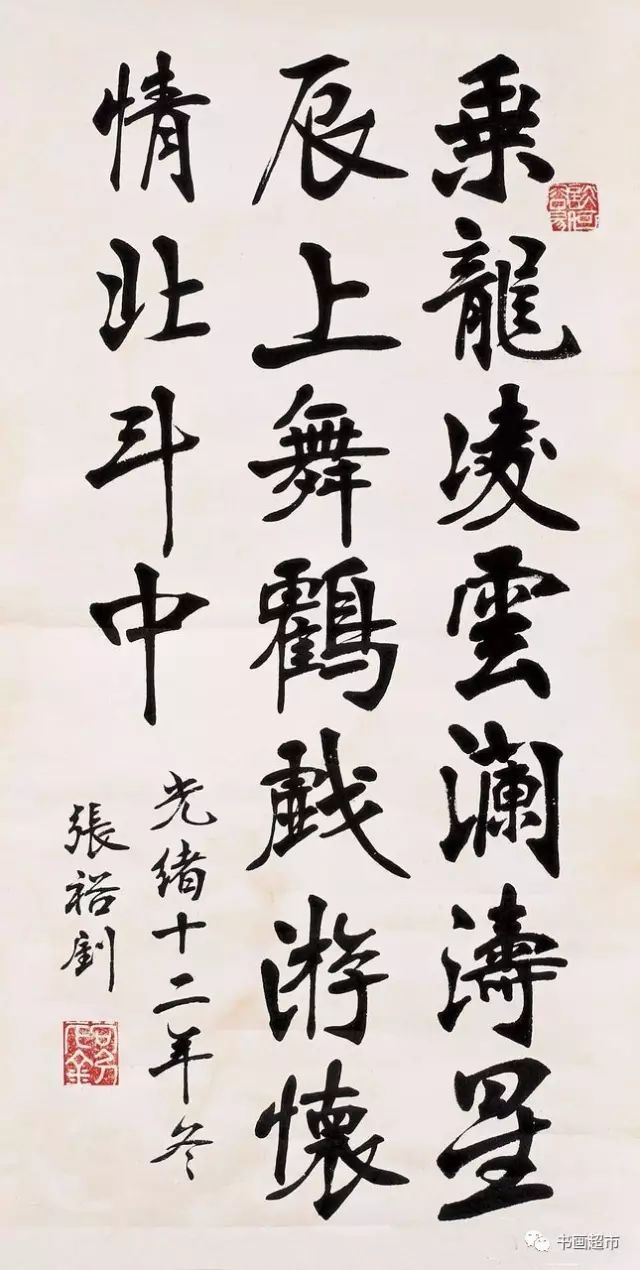 乗龍凌雲瀾濤星
辰上舞鶴戲游懷
情北斗中
光緒十二年冬
張裕釗
书画超市